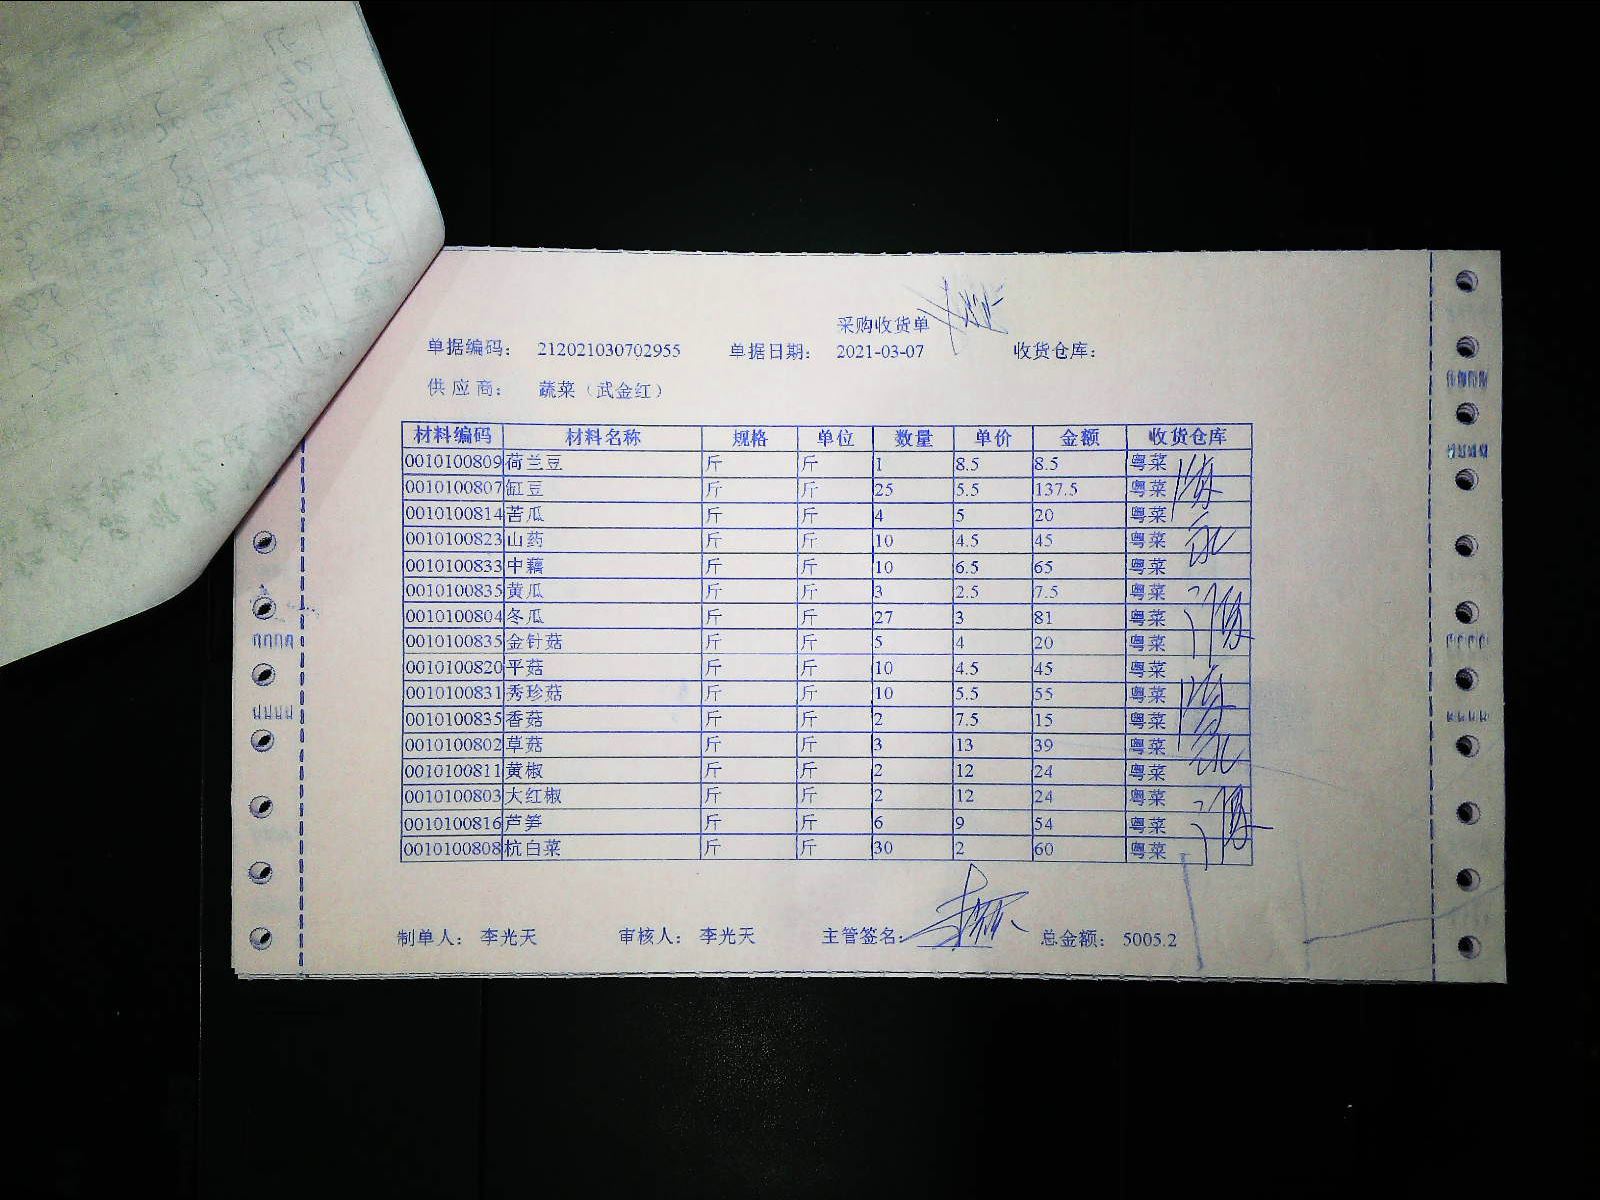 采购收货单
单据编码： 212021030702955 单据日期： 2021-03-07 收货仓库：
供应商： 蔬菜（武金红）
材料编码 材料名称 规格 单位 数量 单价 金额 收货仓库
0010100809 荷兰豆 斤 斤 1 8.5 8.5 粤菜
0010100807 缸豆 斤 斤 25 5.5 137.5 粤菜
0010100814 苦瓜 斤 斤 4 5 20 粤菜
0010100823 山药 斤 斤 10 4.5 45 粤菜
0010100833 中藕 斤 斤 10 6.5 65 粤菜
0010100835 黄瓜 斤 斤 3 2.5 7.5 粤菜
0010100804 冬瓜 斤 斤 27 3 81 粤菜
0010100835 金针菇 斤 斤 5 4 20 粤菜
0010100820 平菇 斤 斤 10 4.5 45 粤菜
0010100831 秀珍菇 斤 斤 10 5.5 55 粤菜
0010100835 香菇 斤 斤 2 7.5 15 粤菜
0010100802 草菇 斤 斤 3 13 39 粤菜
0010100811 黄椒 斤 斤 2 12 24 粤菜
0010100803 大红椒 斤 斤 2 12 24 粤菜
0010100816 芦笋 斤 斤 6 9 54 粤菜
0010100808 杭白菜 斤 斤 30 2 60 粤菜
制单人： 李光天 审核人： 李光天 主管签名： 总金额： 5005.2